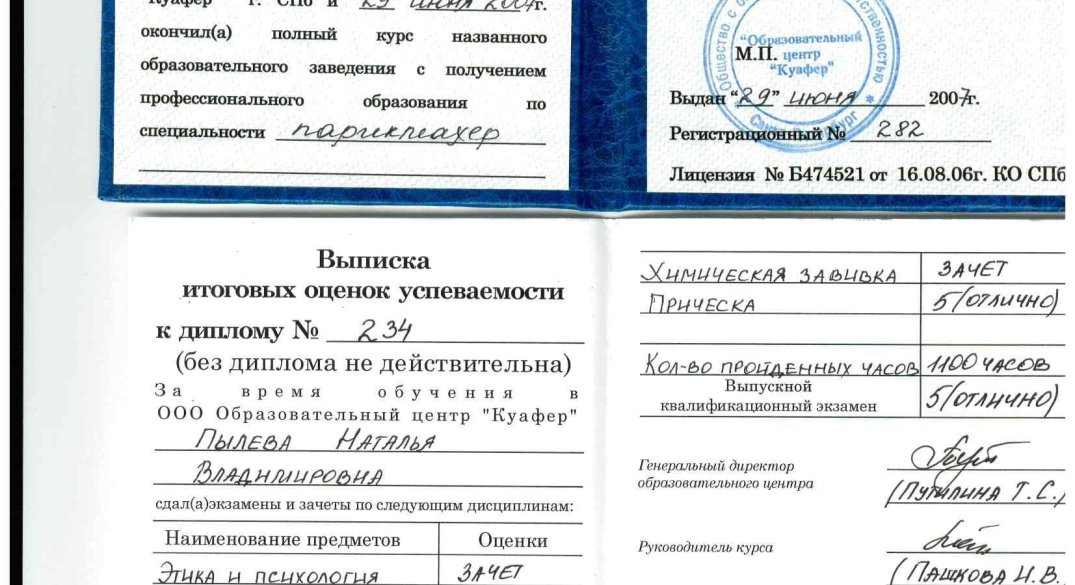 "Куафер" г. СПб и 29 июня 2007г.
окончил(а) полный курс названного
образовательного заведения с получением
профессионального образования по
специальности парикмахер
Общество с ответственностью
"Образовательный
М.П. центр
"Куафер"
Выдан "29" июня 2007г.
Регистрационный № 282
Лицензия № Б474521 от 16.08.06г. КО СПб
Выписка
итоговых оценок успеваемости
к диплому № 234
(без диплома не действительна)
За время обучения в
ООО Образовательный центр "Куафер"
Пылева Наталья
Владимировна
сдал(а)экзамены и зачеты по следующим дисциплинам:
Наименование предметов Оценки
Этика и психология ЗАЧЕТ
Химическая завивка ЗАЧЕТ
Прическа 5(отлично)
Кол-во пройденных часов 1100 часов
Выпускной
квалификационный экзамен 5(отлично)
Генеральный директор
образовательного центра
(Путилина Т.С.)
Руководитель курса
(Пашкова Н.В.